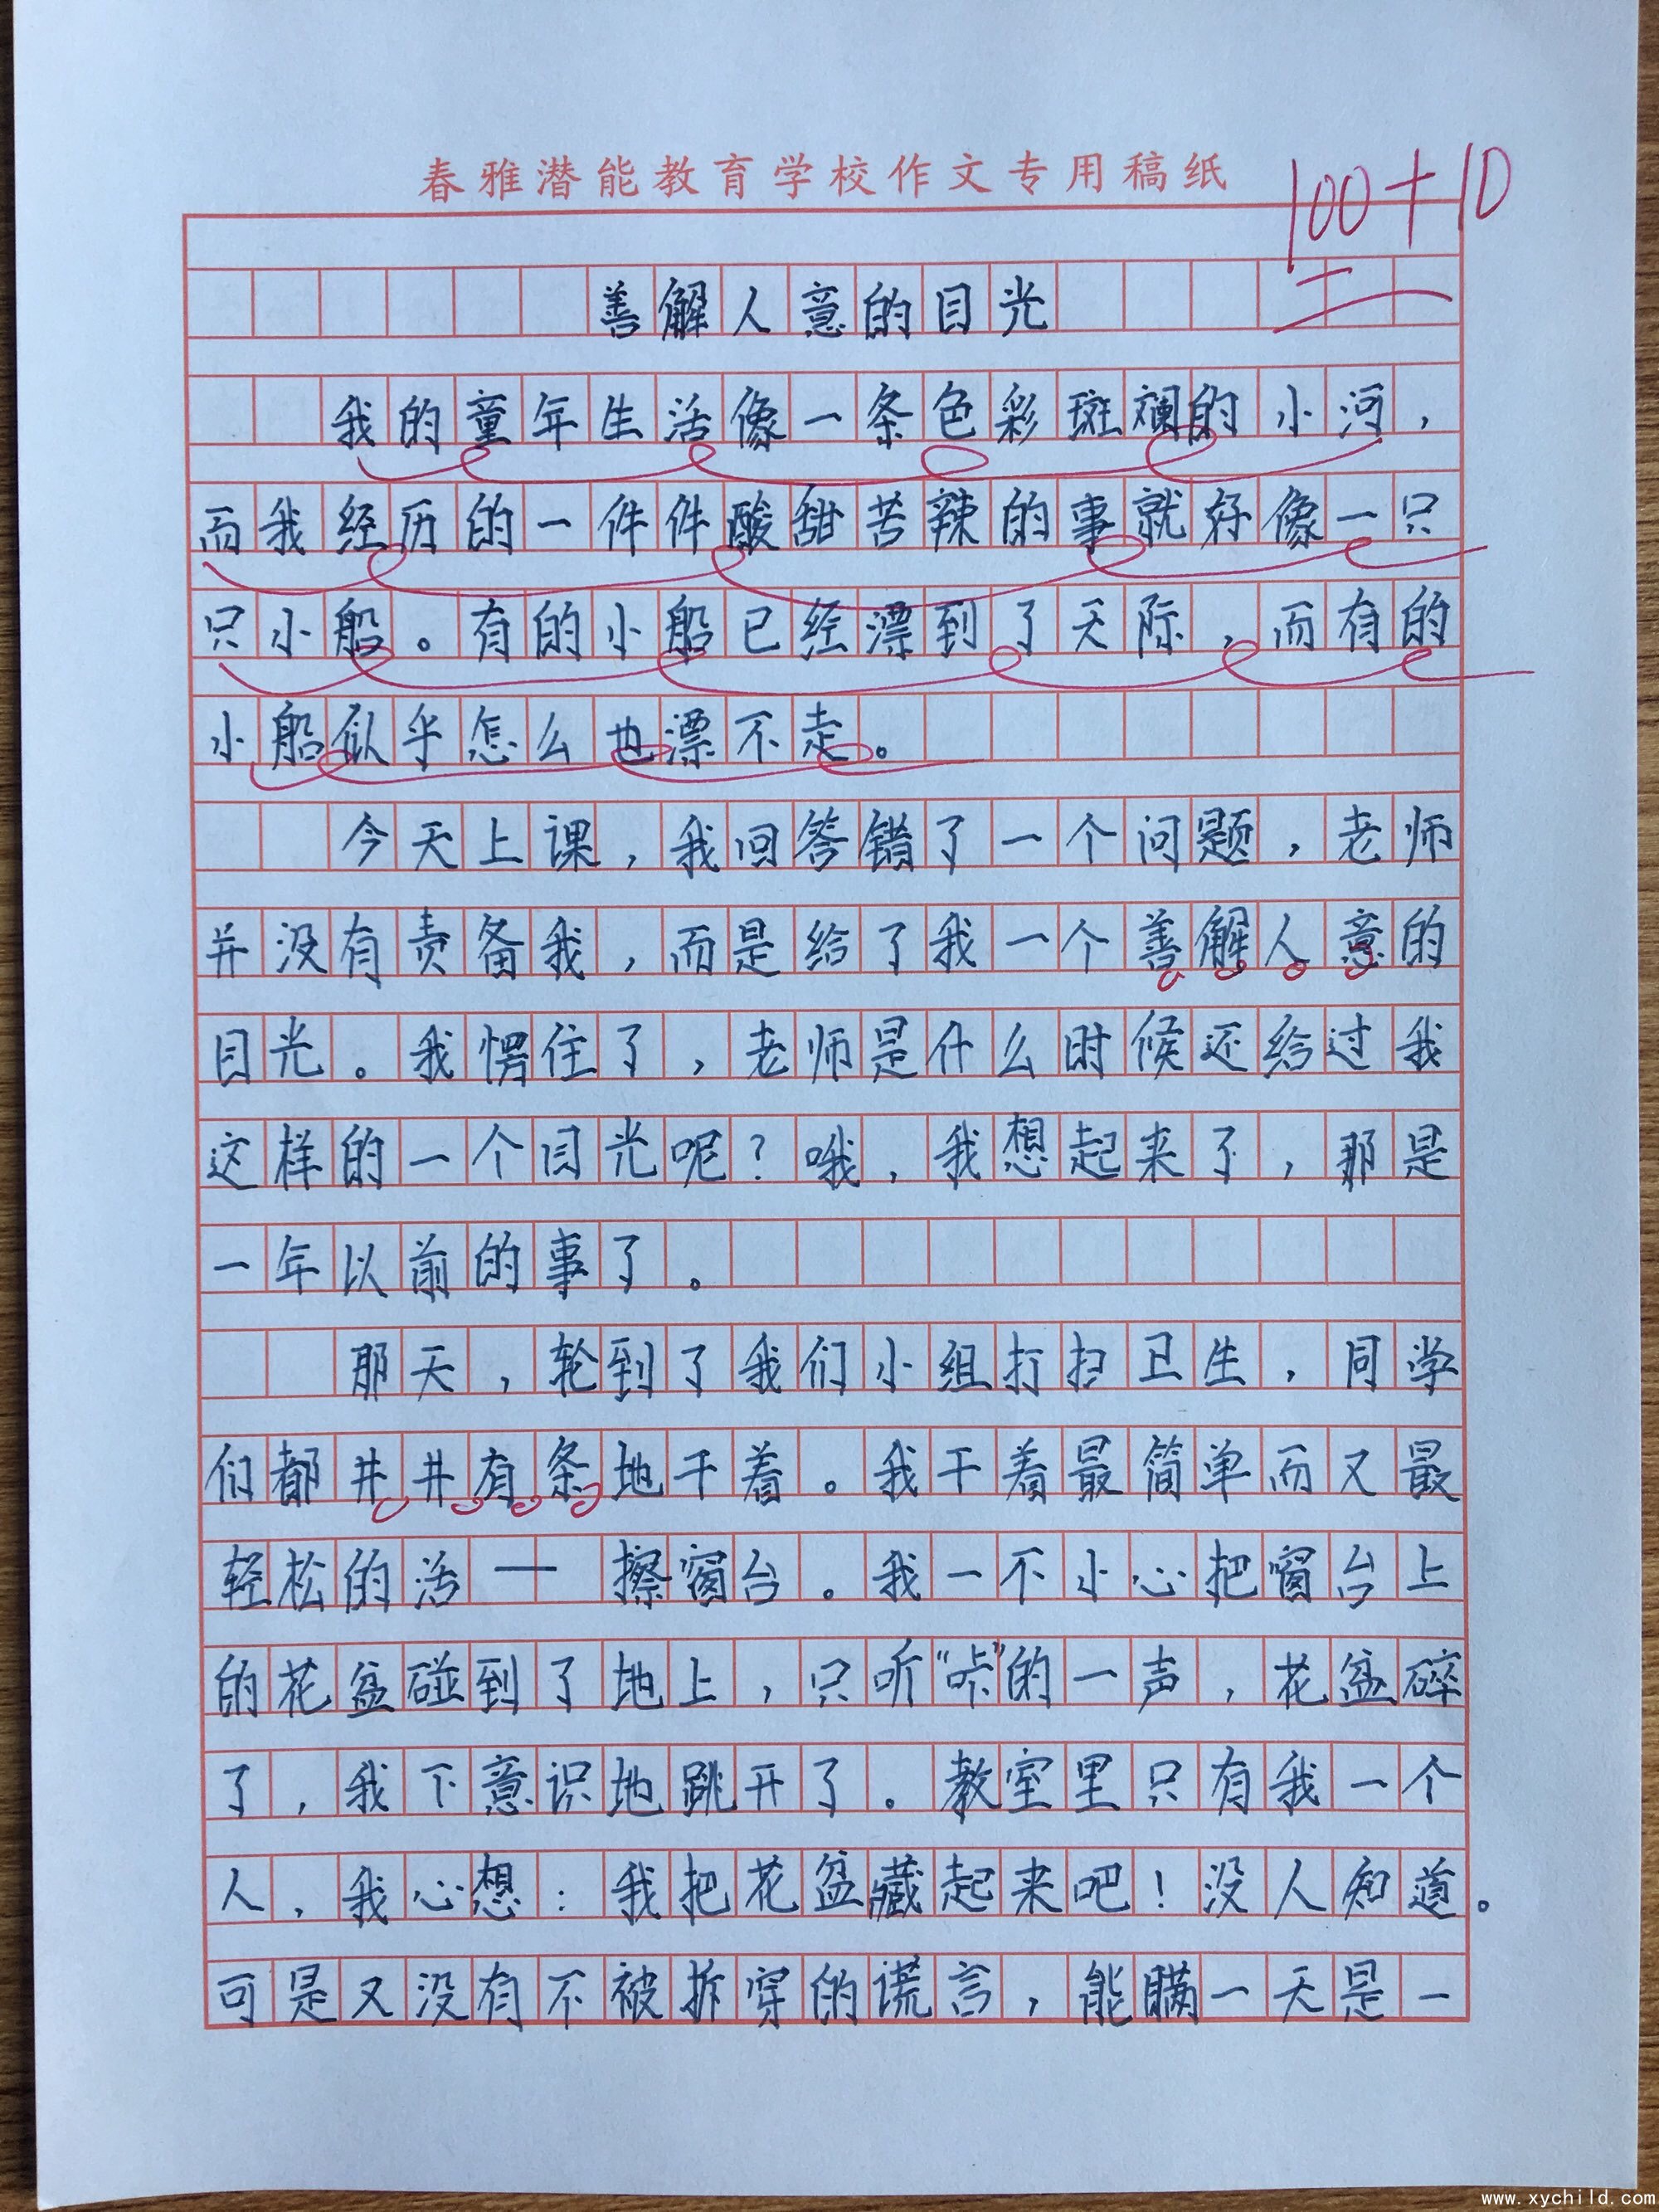 春雅潜能教育学校作文专用稿纸
100+10
善解人意的目光
我的童年生活像一条色彩斑斓的小河，
而我经历的一件件酸甜苦辣的事就好像一只
只小船。有的小船已经漂到了天际，而有的
小船似乎怎么也漂不走。
今天上课，我回答错了一个问题，老师
并没有责备我，而是给了我一个善解人意的
目光。我愣住了，老师是什么时候还给过我
这样的一个目光呢？哦，我想起来了，那是
一年以前的事了。
那天，轮到了我们小组打扫卫生，同学
们都井井有条地干着。我干着最简单而又最
轻松的活——擦窗台。我一不小心把窗台上
的花盆碰到了地上，只听“咔”的一声，花盆碎
了，我下意识地跳开了。教室里只有我一个
人，我心想：我把花盆藏起来吧！没人知道。
可是又没有不被拆穿的谎言，能瞒一天是一
www.xychild.com